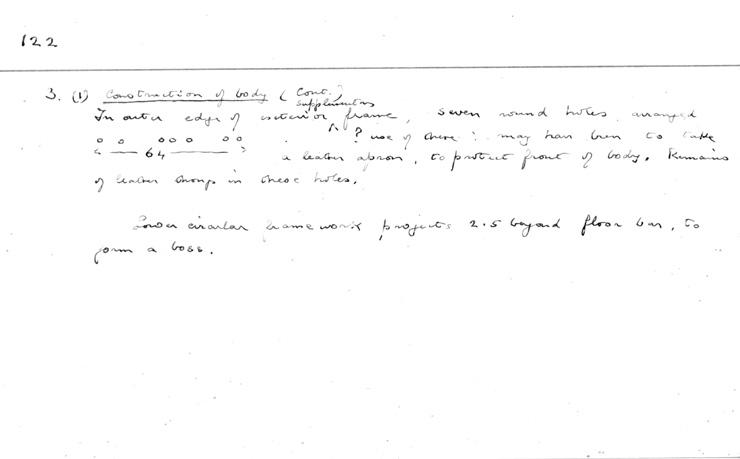 122
3. (1) Construction of body (Cont.)
supplementary
In outer edge of exterior frame, seven round holes, arranged
o o ooo oo . ? use of these : may have been to take
< — 64 — > a leather apron, to protect front of body. Remains
of leather thongs in these holes.
Lower circular framework projects 2.5 beyond floor bar, to
form a boss.